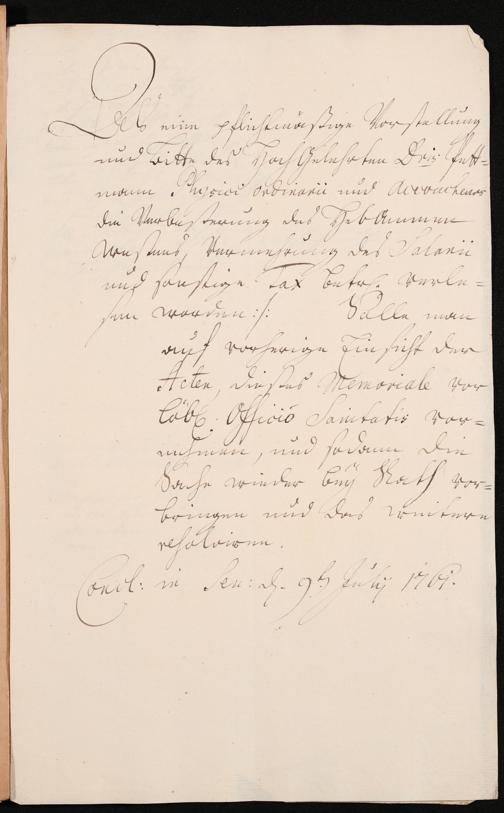 Als eine pflichtmäßige Vorstellung
und Bitte des HochGelehrten Dris Pett=
mann, Physici ordinarii und Accoucheurs
die Verbeßerung des Hebammen
Wesens, Vermehrung des Salarii
und sonstige Tax betrf. verle=
sen worden :/: Solle man
auf vorherige Einsicht der
Acten, dieses Memoriale vor
löbl. Officio Sanitatis vor=
nehmen, und sodann die
Sache wieder bey Rath vor=
bringen und das weitere
resolviren.
Concl: in Sen: d. 9ten July 1761.